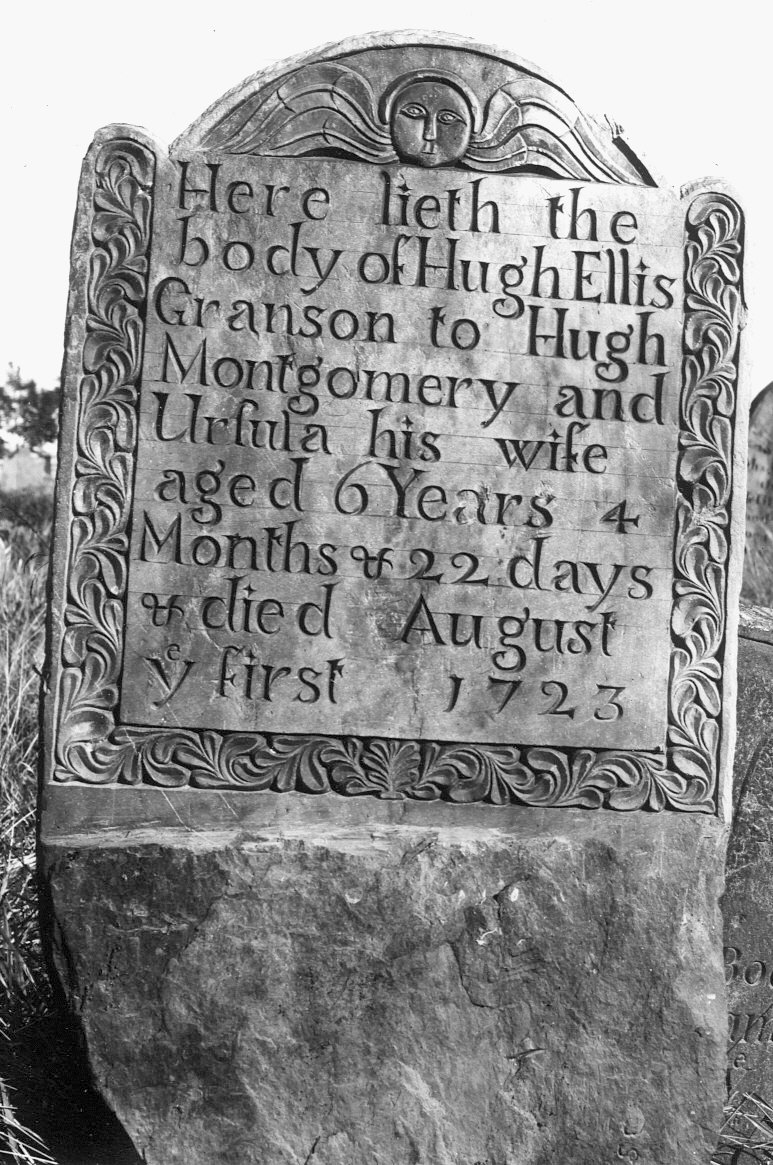 Here lieth the
body of Hugh Ellis
Granson to Hugh
Montgomery and
Urſula his wife
aged 6 Years 4
Months & 22 days
& died August
yᵉ first 1723